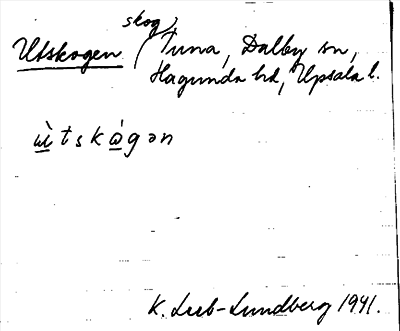 skog,
Utskogen / Tuna, Dalby sn,
Hagunda hd, Upsala l.
ù̲tskò̲gən
K. Lieb-Lundberg 1941.